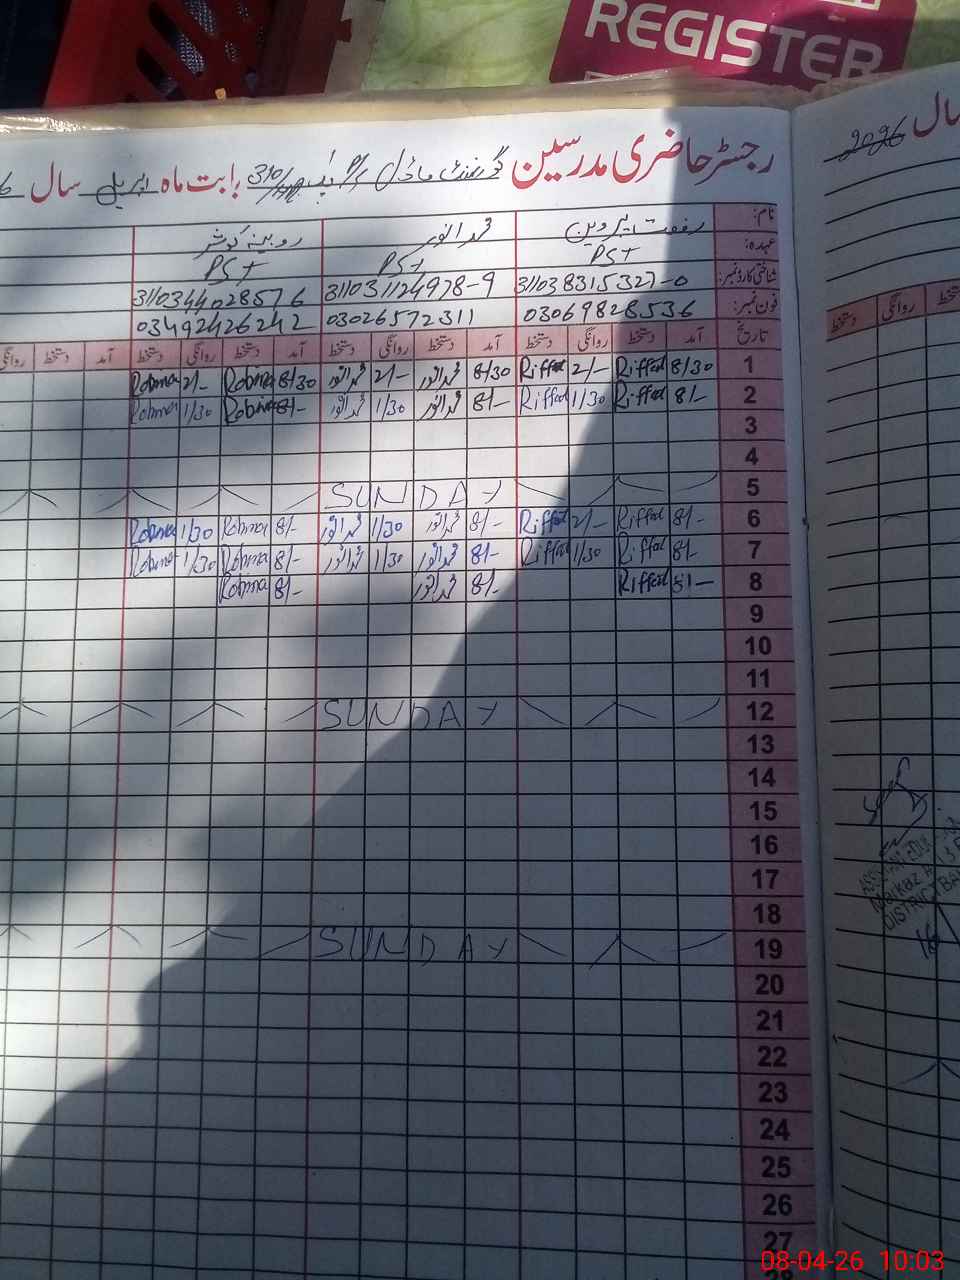 REGISTER
سال 2026
رجسٹر حاضری مدرسین گورنمنٹ ماڈل بابت ماہ اپریل سال
نام: رفعت پروین محمد انور روبینہ کوثر
عہدہ: PST PST PST
شناختی کارڈ نمبر: 311038315327-0 311031124978-9 3110344028576
فون نمبر: 03069828536 03026572311 03492426242
تاریخ آمد دستخط روانگی دستخط آمد دستخط روانگی دستخط آمد دستخط روانگی دستخط آمد دستخط روانگی
دستخط روانگی دستخط
1 8/30 Riffat 2/- Riffat 8/30 محمد انور 2/- محمد انور 8/30 Robina 2/- Robina
2 8/- Riffat 1/30 Riffat 8/- محمد انور 1/30 محمد انور 8/- Robina 1/30 Robina
3
4
5 SUNDAY
6 8/- Riffat 2/- Riffat 8/- محمد انور 1/30 محمد انور 8/- Robina 1/30 Robina
7 8/- Riffat 1/30 Riffat 8/- محمد انور 1/30 محمد انور 8/- Robina 1/30 Robina
8 8/- Riffat 8/- محمد انور 8/- Robina
9
10
11
12 SUNDAY
13
14
15
16
17
18
19 SUNDAY
20
21
22
23
24
25
26
27
08-04-26 10:03